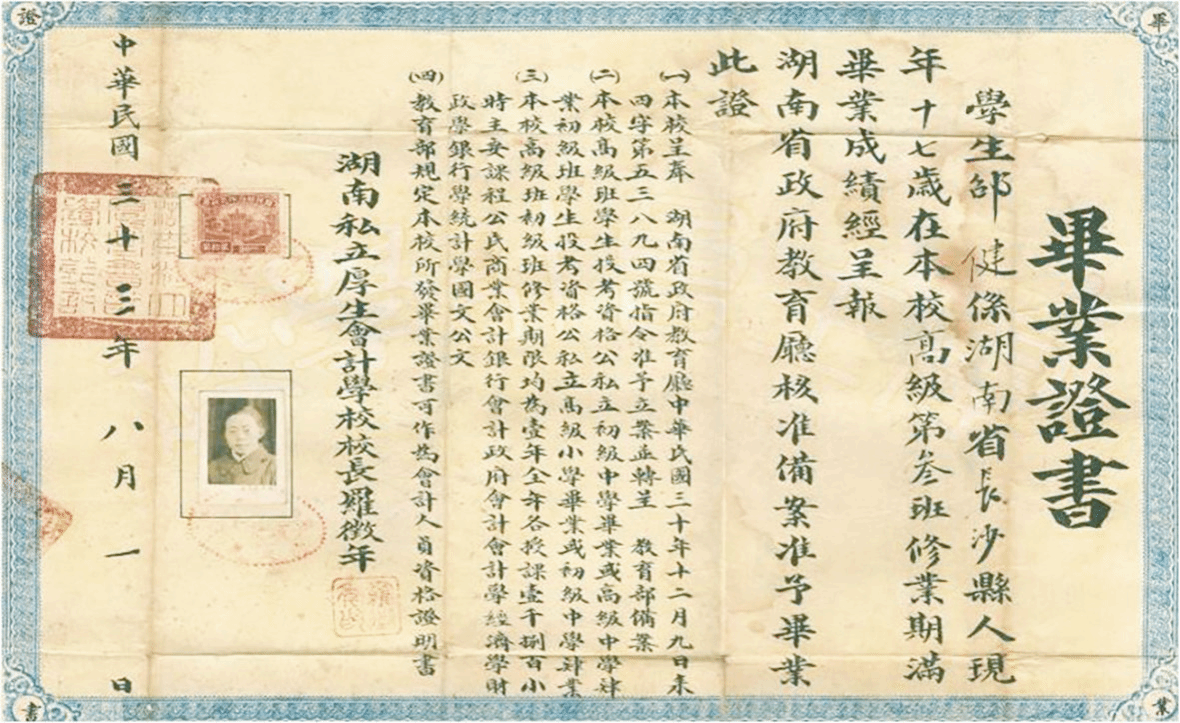 畢業證書
學生邵健係湖南省長沙縣人現
年十七歲在本校高級第叁班修業期滿
畢業成績經呈報
湖南省政府教育廳核准備案准予畢業
此證
(一)本校呈奉 湖南省政府教育廳中華民國三十年十二月九日未
四字第五三八九四號指令准予立案並轉呈 教育部備案
(二)本校高級班學生投考資格公私立初級中學畢業或高級中學肄
業初級班學生投考資格公私立高級小學畢業或初級中學肄業
(三)本校高級班初級班修業期限均為壹年全年各授課壹千捌百小
時主要課程公民商業會計銀行會計政府會計會計學經濟學財
政學銀行學統計學國文公文
(四)教育部規定本校所發畢業證書可作為會計人員資格證明書
湖南私立厚生會計學校校長羅徵年
中華民國三十三年八月一日
畢
業
證
書